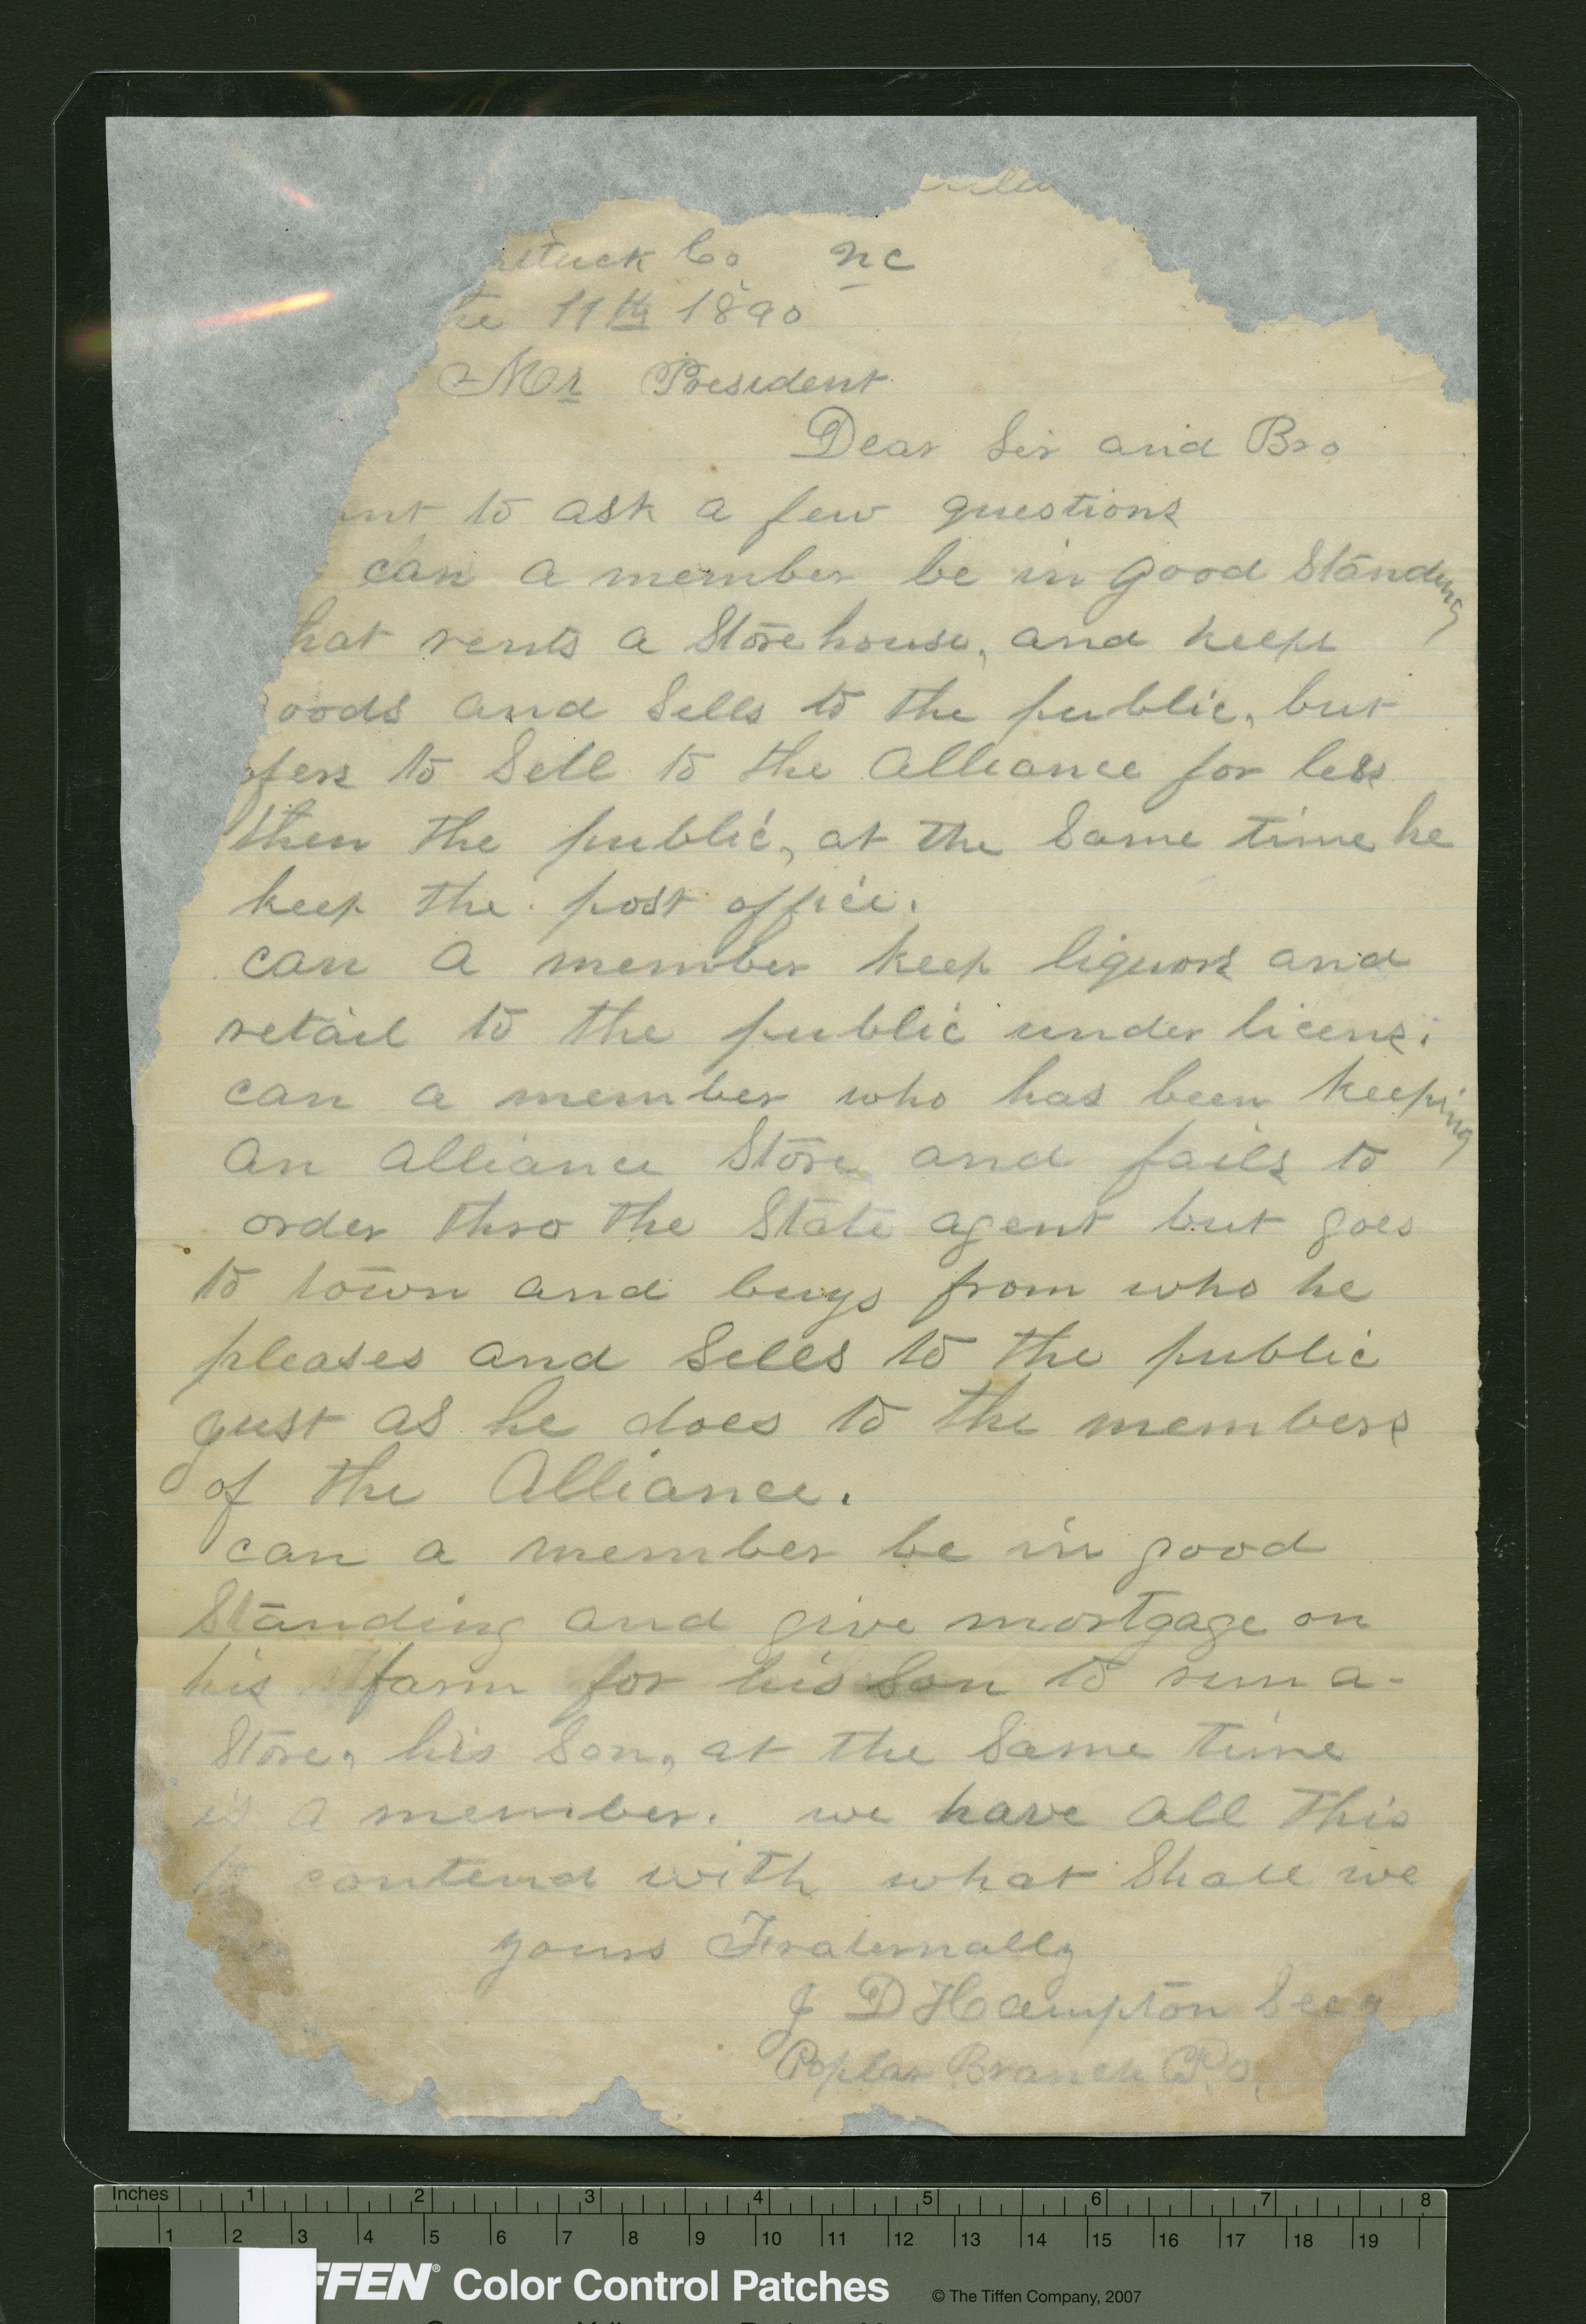 ituck Co NC
the 11th 1890
Mr President
Dear Sir and Bro
ant to ask a few questions
can a member be in good Standing
hat rents a Store house, and keeps
goods and Sells to the public, but
ofers to Sell to the Alliance for less
then the public, at the Same time he
keep the post office.
can a member keep liquors and
retail to the public under license
can a member who has been keeping
An Alliance Store and fails to
order thro the State agent but goes
to town and buys from who he
pleases and Sells to the public
just as he does to the members
of the Alliance.
can a member be in good
Standing and give mortgage on
his farm for his Son to run a-
Store, his Son, at the Same time
is a member. we have all this
to contend with what Shall we
yours Fraternally
J D Hampton Secy
Poplar Branch P.O.
Inches 1 2 3 4 5 6 7 8
1 2 3 4 5 6 7 8 9 10 11 12 13 14 15 16 17 18 19
FFEN® Color Control Patches © The Tiffen Company, 2007